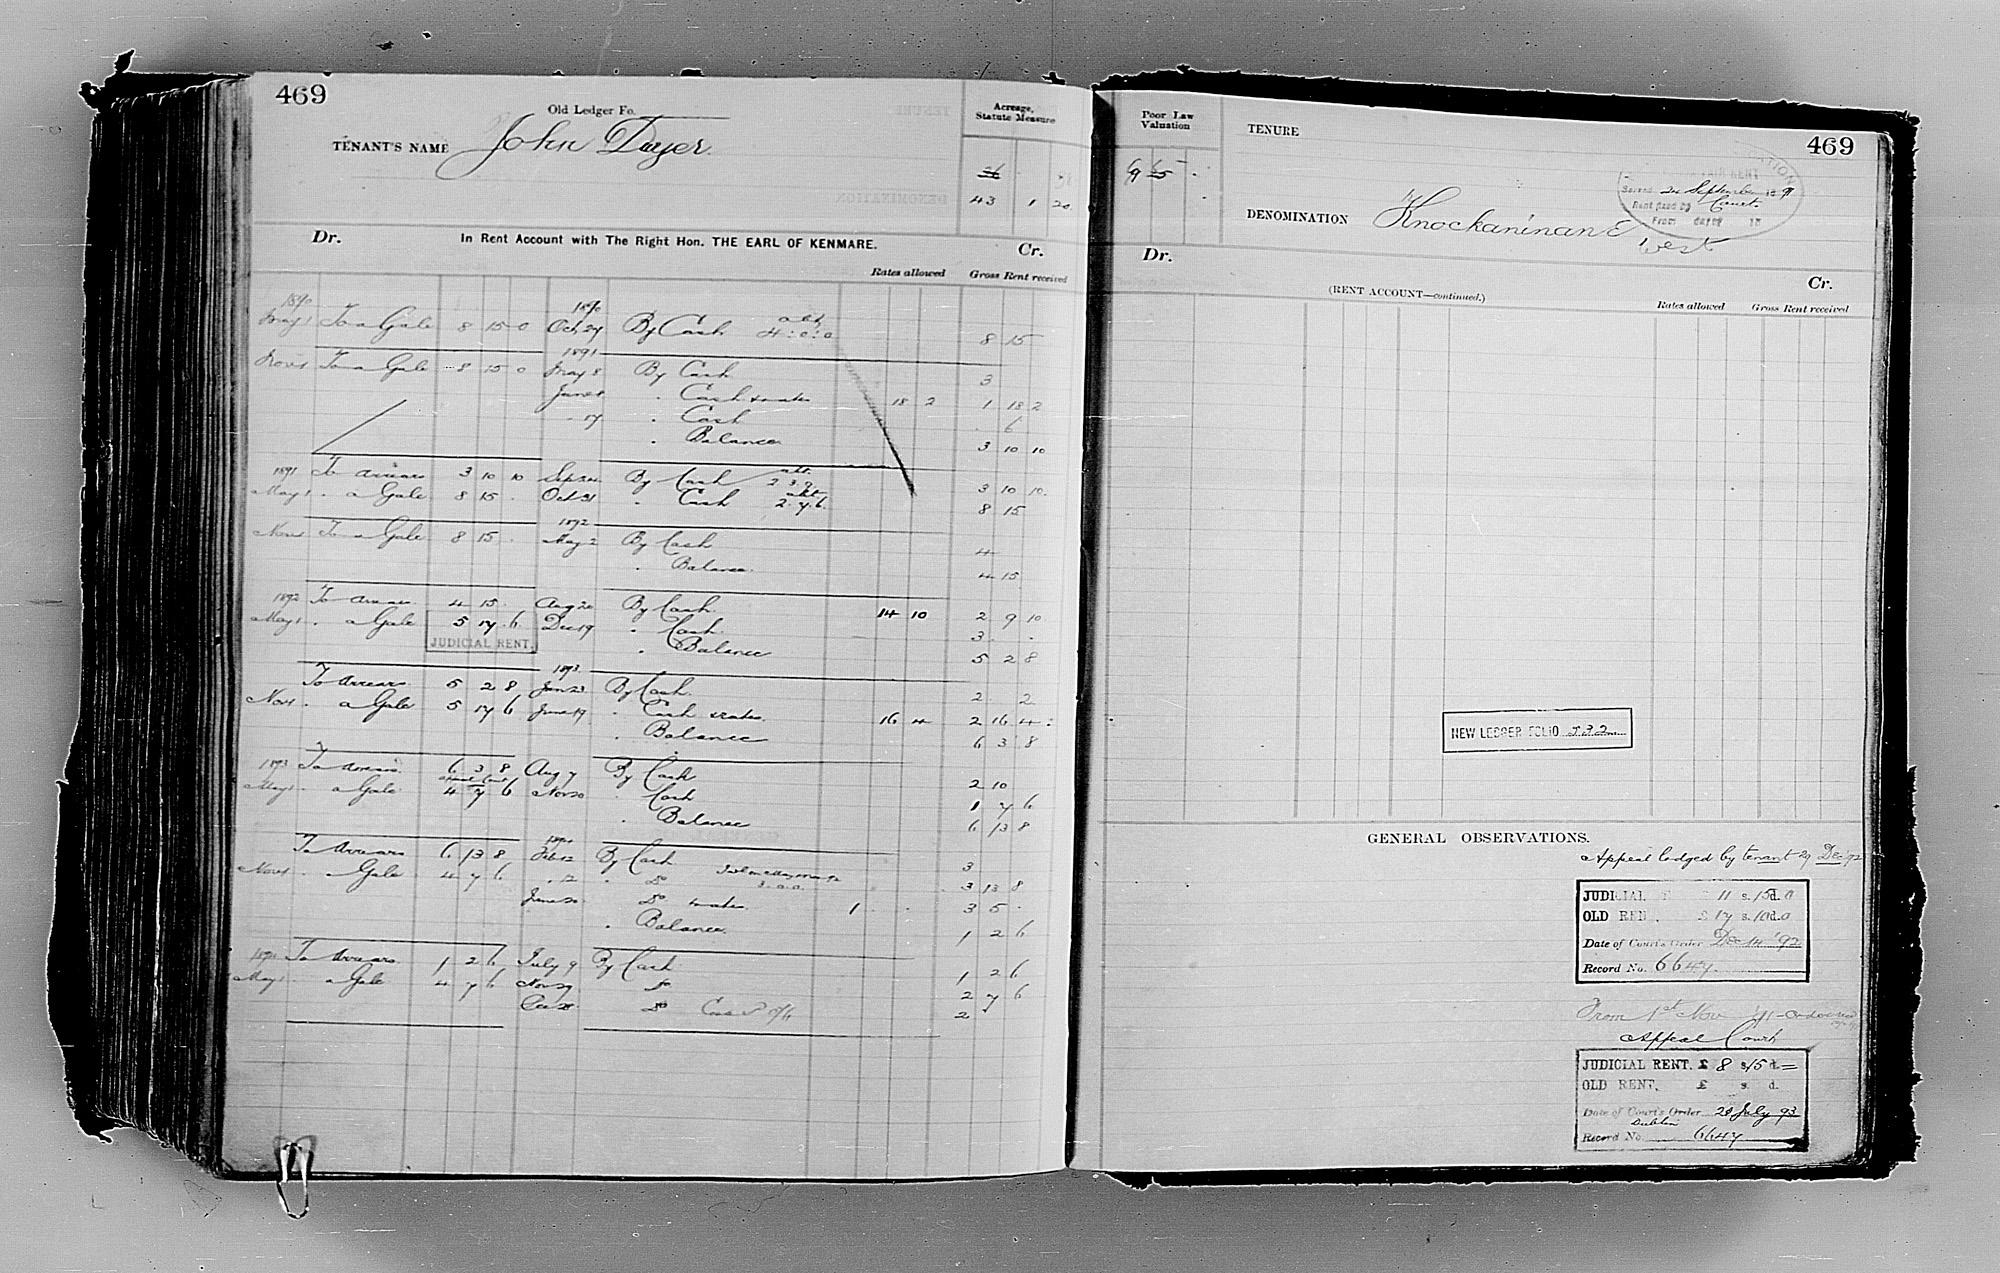 469
Old Ledger Fo.
TENANT'S NAME John Dwyer
Acreage,
Statute Measure
26
43 1 20
Dr. In Rent Account with The Right Hon. THE EARL OF KENMARE. Cr.
Rates allowed Gross Rent received
1890 1890
May 1 To a Gale 8 15 0 Oct 27 By Cash 4:0:0 8 15
1891
Nov 1 To a Gale 8 15 0 May 8 By Cash 3
June Cash & rates 18 2 1 18 2
17 Cash 6
Balance 3 10 10
1891 To Arrears 3 10 10 Sep By Cash 2 3 9 3 10 10
May 1 a Gale 8 15 Oct 31 Cash 2.7.6 8 15
1892
Nov 1 To a Gale 8 15 May 2 By Cash 4
Balance 4 15
1892 To Arrears 4 15 Aug 20 By Cash 14 10 2 9 10
May 1 a Gale 5 17 6 Dec 19 Cash 3
JUDICIAL RENT. Balance 5 2 8
1893
To Arrears 5 2 8 Jan 23 By Cash 2 2
Nov 1 a Gale 5 17 6 June 19 Cash & rates 16 4 2 16 4
Balance 6 3 8
1893 To Arrears 6 3 8 Aug 7 By Cash 2 10
Appeal Court
May 1 a Gale 4 7 6 Nov 20 Cash 1 7 6
Balance 6 13 8
1894
To Arrears 6 13 8 Feb 12 By Cash 3
Nov 1 Gale 4 7 6 12 Do 3.0.0 3 13 8
June 20 Do rates 1 3 5
Balance 1 2 6
1894 To Arrears 1 2 6 July 9 By Cash 1 2 6
May 1 a Gale 4 7 6 Nov 29 Do 2 7 6
Dec 28 Do 2
Poor Law
Valuation
9 5
TENURE
469
FAIR RENT
Served 24 September 1891
Rent fixed by Court
From dated 18
DENOMINATION Knockaninane
West
Dr. Cr.
(RENT ACCOUNT—continued.)
Rates allowed Gross Rent received
NEW LEDGER FOLIO 532
GENERAL OBSERVATIONS.
Appeal lodged by tenant 29 Dec '92
JUDICIAL £ 11 s. 15 d. 0
OLD RENT, £ 17 s. 10 d. 0
Date of Court's Order Dec 14 '92
Record No. 6647
From 1st Nov '91
Appeal Court
JUDICIAL RENT. £ 8 s. 15 d. =
OLD RENT, £ s. d.
Date of Court's Order 28 July 93
Dublin
Record No. 6647